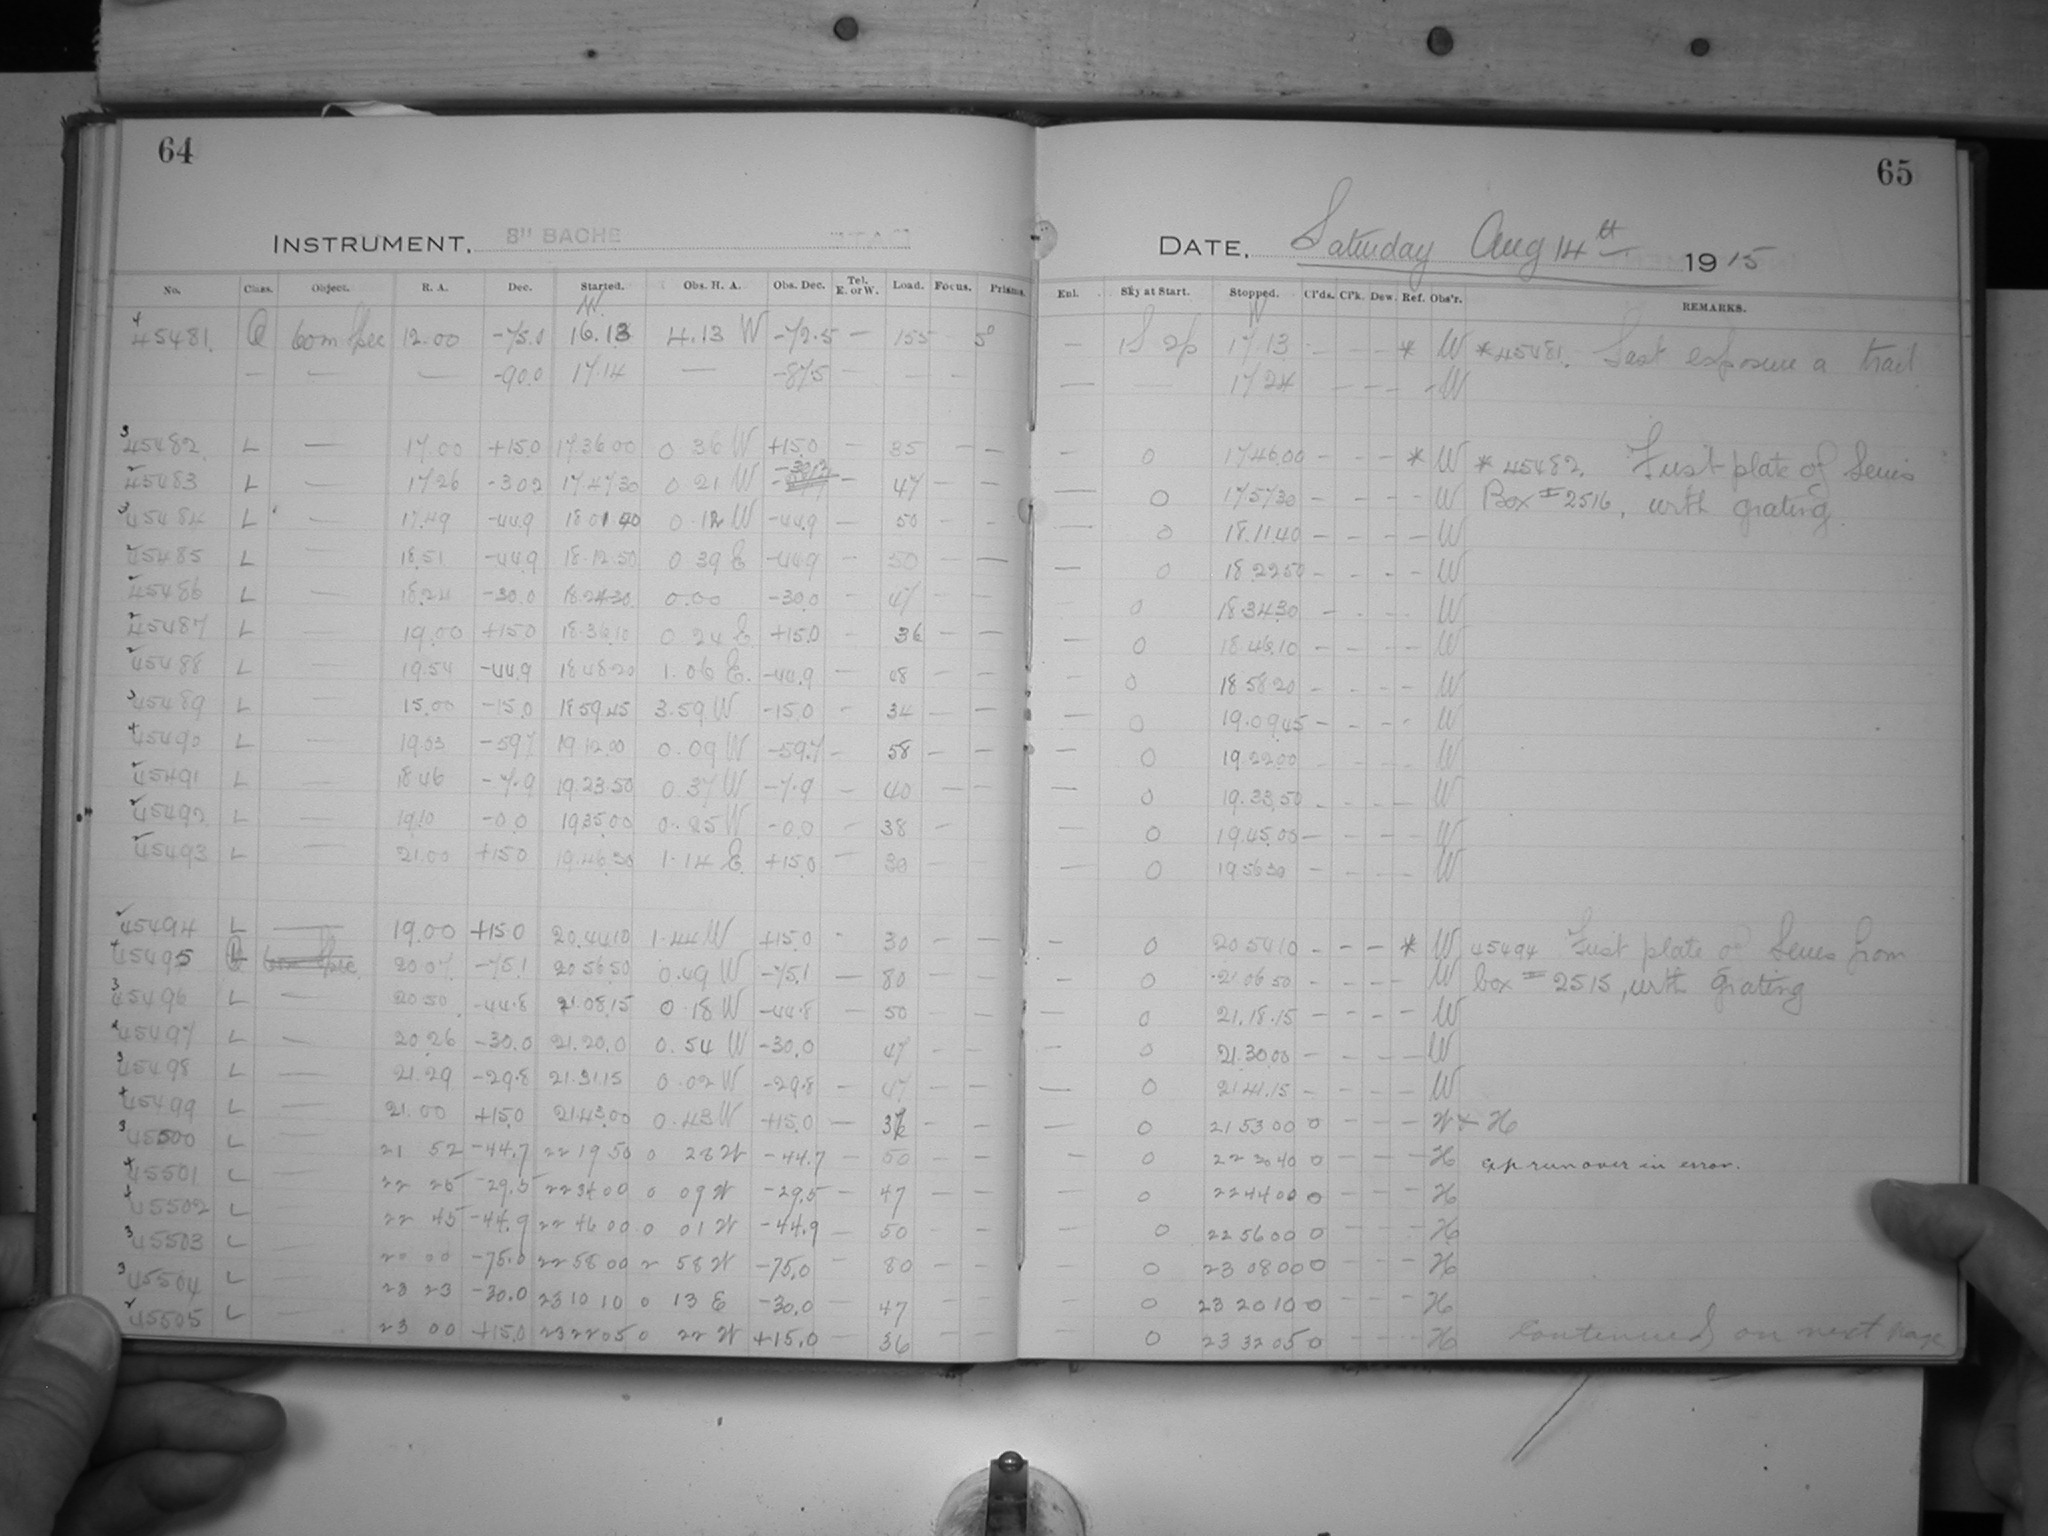 64
65
INSTRUMENT, 8" BACHE
DATE, Saturday Aug 14th 1915
No. Class. Object. R. A. Dec. Started. Obs. H. A. Obs. Dec. Tel. E. or W. Load. Focus. Prisms. Enl. Sky at Start. Stopped. Cl'ds. Cl'k. Dew. Ref. Obs'r. REMARKS.
45481 60m Spec 12.00 -75.0 16.13 4.13 W -72.5 — 155 — — 17.13 — — — * W *45481. Last exposure a trail
— — — -90.0 17.14 — -87.5 — — — — — 17 24 — — — - W
45482 L — 17.00 +15.0 17.36 00 0 36 W +15.0 — 35 — — 0 17.46.00 — — — * W *45482. First plate of Series
45483 L — 17 26 -30.2 17 47 30 0 21 W — 47 — — 0 17 57 30 — — — W Box # 2516, with grating.
45484 L — 17.49 -44.9 18 01 40 0.12 W -44.9 — 50 — — 0 18.11.40 — — — — W
45485 L — 18.51 -44.9 18.12.50 0 39 E -44.9 — 50 — — — 0 18 22 50 — - - - W
45486 L — 18.24 -30.0 18.24 30 0.00 -30.0 — 47 — — 0 18 34 30 — - - - W
45487 L — 19.00 +15.0 18.36.10 0 24 E +15.0 - 36 — — — 0 18 46.10 - - - - W
45488 L — 19.54 -44.9 18 48 20 1.06 E. -44.9 — 48 — — 0 18 58 20 - - - - W
45489 L — 15.00 -15.0 18 59 45 3.59 W -15.0 - 34 — — — 0 19.09 45 - - - - W
45490 L — 19.33 -59.7 19 12.00 0.09 W -59.7 - 58 — — — 0 19 22 00 W
45491 L — 18 46 -7.9 19.23.50 0 37 W -7.9 — 40 — — — 0 19.33.50 - - - — W
45492 L — 19.10 -0.0 19 35 00 0.25 W -0.0 — 38 — — 0 19.45.00 — - - - W
45493 L — 21.00 +15.0 19.46 30 1.14 E +15.0 — 30 — — 0 19 56 30 - - - - W
45494 L — 19.00 +15.0 20.44 10 1.44 W +15.0 - 30 — — - 0 20 54 10 - - - * W 45494 First plate of Series from
45495 L 20.07 -75.1 20 56 50 0.49 W -75.1 — 80 — — — 0 21.06 50 - - - - W box # 2515, with grating
45496 L — 20 50 -44.8 21.08.15 0.18 W -44.8 — 50 — — — 0 21.18.15 - - - - W
45497 L — 20 26 -30.0 21.20.0 0.54 W -30.0 47 - — — 0 21.30 00 - - - - W
45498 L — 21.29 -29.8 21.31.15 0.02 W -29.8 — 47 — — — 0 21 41.15 - - - - W
45499 L — 21.00 +15.0 21 43.00 0.43 W +15.0 — 36 - — — 0 21 53 00 0 - - - W + H
45500 L — 21 52 -44.7 22 19 50 0 28 W -44.7 - 50 — — - 0 22 30 40 0 - - - H exp run over in error.
45501 L — 22 25 -29.5 22 34 00 0 09 W -29.5 — 47 — — 0 22 44 00 0 - - - H
45502 L — 22 45 -44.9 22 46 00 0 01 W -44.9 50 — — 0 22 56 00 0 - - - H
45503 L — 20 00 -75.0 22 58 00 2 58 W -75.0 — 80 — — 0 23 08 00 0 - - - H
45504 L — 23 23 -30.0 23 10 10 0 13 E -30.0 — 47 — — 0 23 20 10 0 - - - H
45505 L — 23 00 +15.0 23 22 05 0 22 W +15.0 — 36 — — 0 23 32 05 0 - - - H Continued on next page